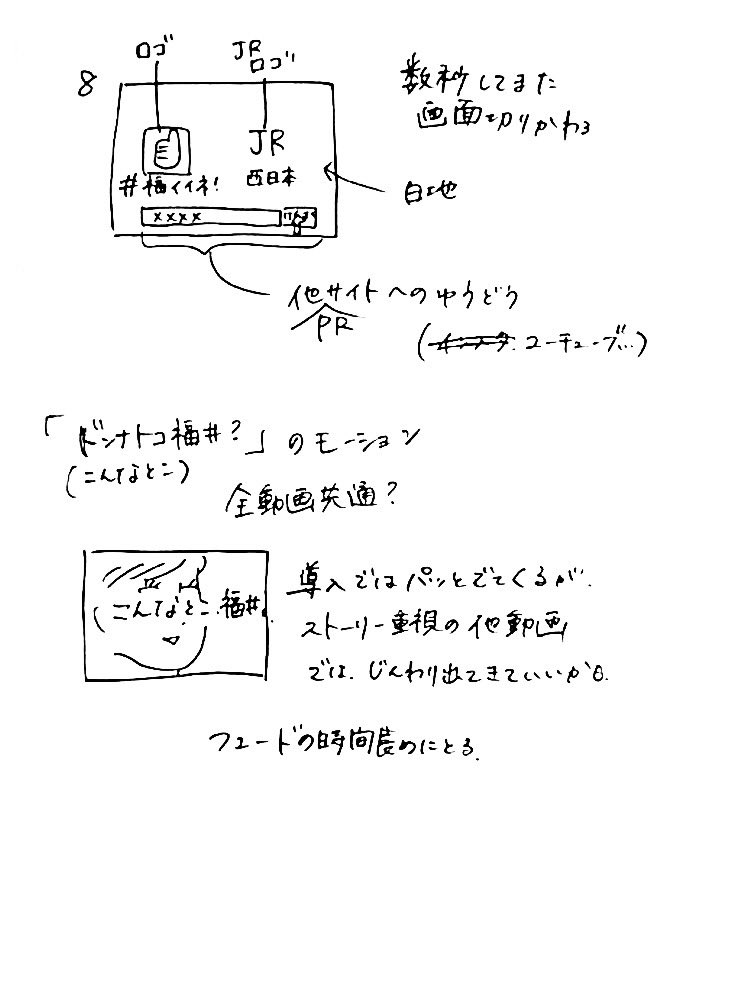 8
ロゴ
JR
ロゴ
数秒してまた
画面切りかわる
JR
西日本
#福イイネ!
白地
xxxx
けんさく
他サイトへのゆうどう
PR
(インスタ.ユーチューブ…)
「ドンナトコ福井?」のモーション
(こんなとこ)
全動画共通?
こんなとこ.福井.
導入ではパッとでてくるが.
ストーリー重視の他動画
では.じんわり出てきていいかも.
フェードの時間長めにとる.